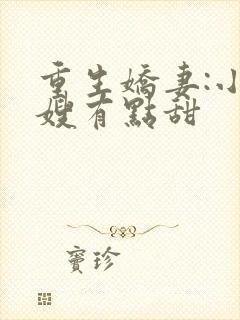 重生嬌妻:小
嫂有點甜
寶珍